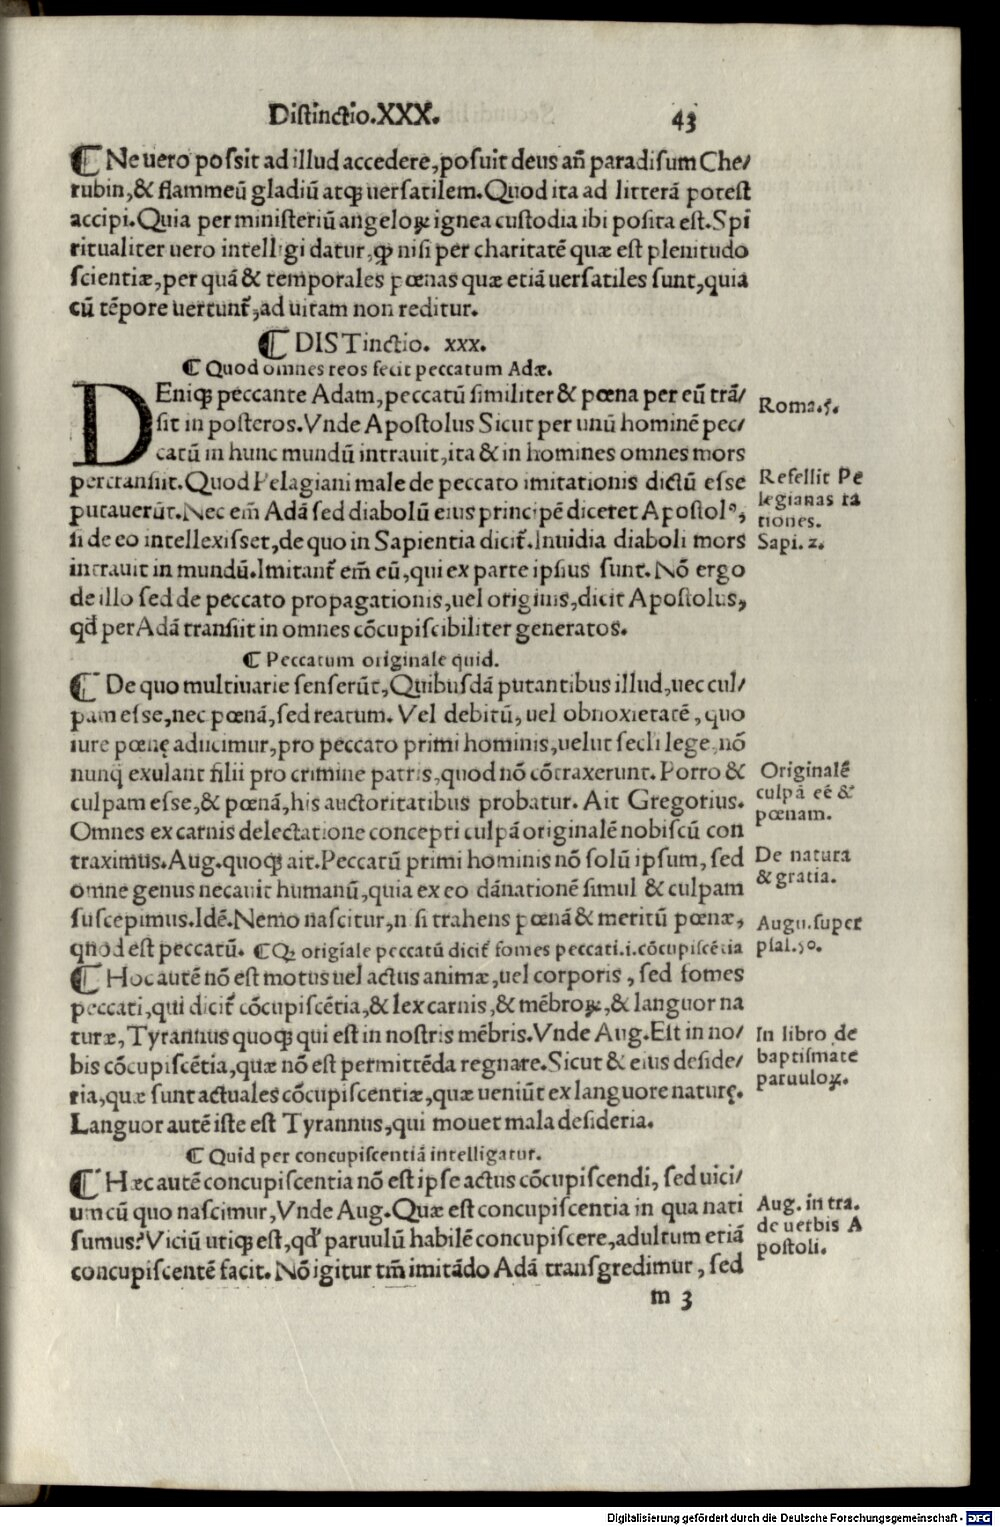 Distinctio.XXX. 43
¶ Ne uero possit ad illud accedere, posuit deus añ paradisum Che/
rubin, & flammeũ gladiũ atqꝫ uersatilem. Quod ita ad litterã potest
accipi. Quia per ministeriũ angeloꝝ ignea custodia ibi posita est. Spi
ritualiter uero intelligi datur, ꝙ nisi per charitatẽ quæ est plenitudo
scientiæ, per quã & temporales pœnas quæ etiã uersatiles sunt, quia
cũ tẽpore uertunt̃, ad uitam non reditur.
¶ DISTinctio. xxx.
¶ Quod omnes reos fecit peccatum Adæ.
DEniqꝫ peccante Adam, peccatũ similiter & pœna per eũ trã/
sit in posteros. Vnde Apostolus Sicut per unũ hominẽ pec/
catũ in hunc mundũ intrauit, ita & in homines omnes mors
pertransiit. Quod Pelagiani male de peccato imitationis dictũ esse
putauerũt. Nec em̃ Adã sed diabolũ eius principẽ diceret Apostolꝰ,
si de eo intellexisset, de quo in Sapientia dicit̃. Inuidia diaboli mors
intrauit in mundũ. Imitant̃ em̃ eũ, qui ex parte ipsius sunt. Nõ ergo
de illo sed de peccato propagationis, uel originis, dicit Apostolus,
qđ per Adã transiit in omnes cõcupiscibiliter generatos.
Roma.5.
Refellit Pe
legianas ra
tiones.
Sapi. 2.
¶ Peccatum originale quid.
¶ De quo multiuarie senserũt, Quibusdã putantibus illud, nec cul/
pam esse, nec pœnã, sed reatum. Vel debitũ, uel obnoxietatẽ, quo
iure pœnę adiicimur, pro peccato primi hominis, uelut secli lege, nõ
nunq̃ exulant filii pro crimine patris, quod nõ cõtraxerunt. Porro &
culpam esse, & pœnã, his auctoritatibus probatur. Ait Gregorius.
Omnes ex carnis delectatione concepti culpã originalẽ nobiscũ con
traximus. Aug. quoqꝫ ait. Peccatũ primi hominis nõ solũ ipsum, sed
omne genus necauit humanũ, quia ex eo dãnationẽ simul & culpam
suscepimus. Idẽ. Nemo nascitur, nisi trahens pœnã & meritũ pœnæ,
qnod est peccatũ. ¶ Qꝫ origĩale peccatũ dicit̃ fomes peccati.i.cõcupiscẽtia
Originalẽ
culpã eẽ &
pœnam.
De natura
& gratia.
Augu.super
psal.50.
¶ Hoc autẽ nõ est motus uel actus animæ, uel corporis, sed fomes
peccati, qui dicit̃ cõcupiscẽtia, & lex carnis, & mẽbroꝝ, & languor na
turæ, Tyrannus quoqꝫ qui est in nostris mẽbris. Vnde Aug. Est in no/
bis cõcupiscẽtia, quæ nõ est permittẽda regnare. Sicut & eius deside/
ria, quæ sunt actuales cõcupiscentiæ, quæ ueniũt ex languore naturę.
Languor autẽ iste est Tyrannus, qui mouet mala desideria.
In libro de
baptismate
paruuloꝝ.
¶ Quid per concupiscentiã intelligatur.
¶ Hæc autẽ concupiscentia nõ est ipse actus cõcupiscendi, sed uici/
um cũ quo nascimur, Vnde Aug. Quæ est concupiscentia in qua nati
sumus? Viciũ utiqꝫ est, qđ paruulũ habilẽ concupiscere, adultum etiã
concupiscentẽ facit. Nõ igitur tm̃ imitãdo Adã transgredimur, sed
Aug. in tra.
de uerbis A
postoli.
m 3
Digitalisierung gefördert durch die Deutsche Forschungsgemeinschaft - DFG